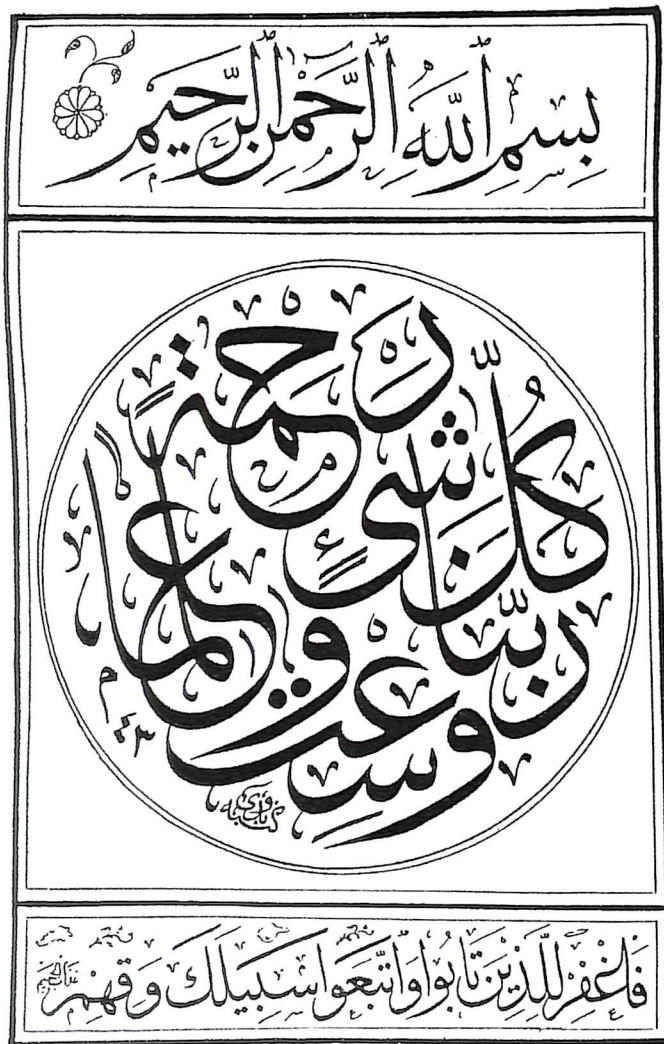 بِسْمِ ٱللَّهِ ٱلرَّحْمٰنِ ٱلرَّحِيمِ
رَبَّنَا وَسِعْتَ كُلَّ شَيْءٍ رَحْمَةً وَعِلْمًا
فَاغْفِرْ لِلَّذِينَ تَابُوا وَٱتَّبَعُوا سَبِيلَكَ وَقِهِمْ